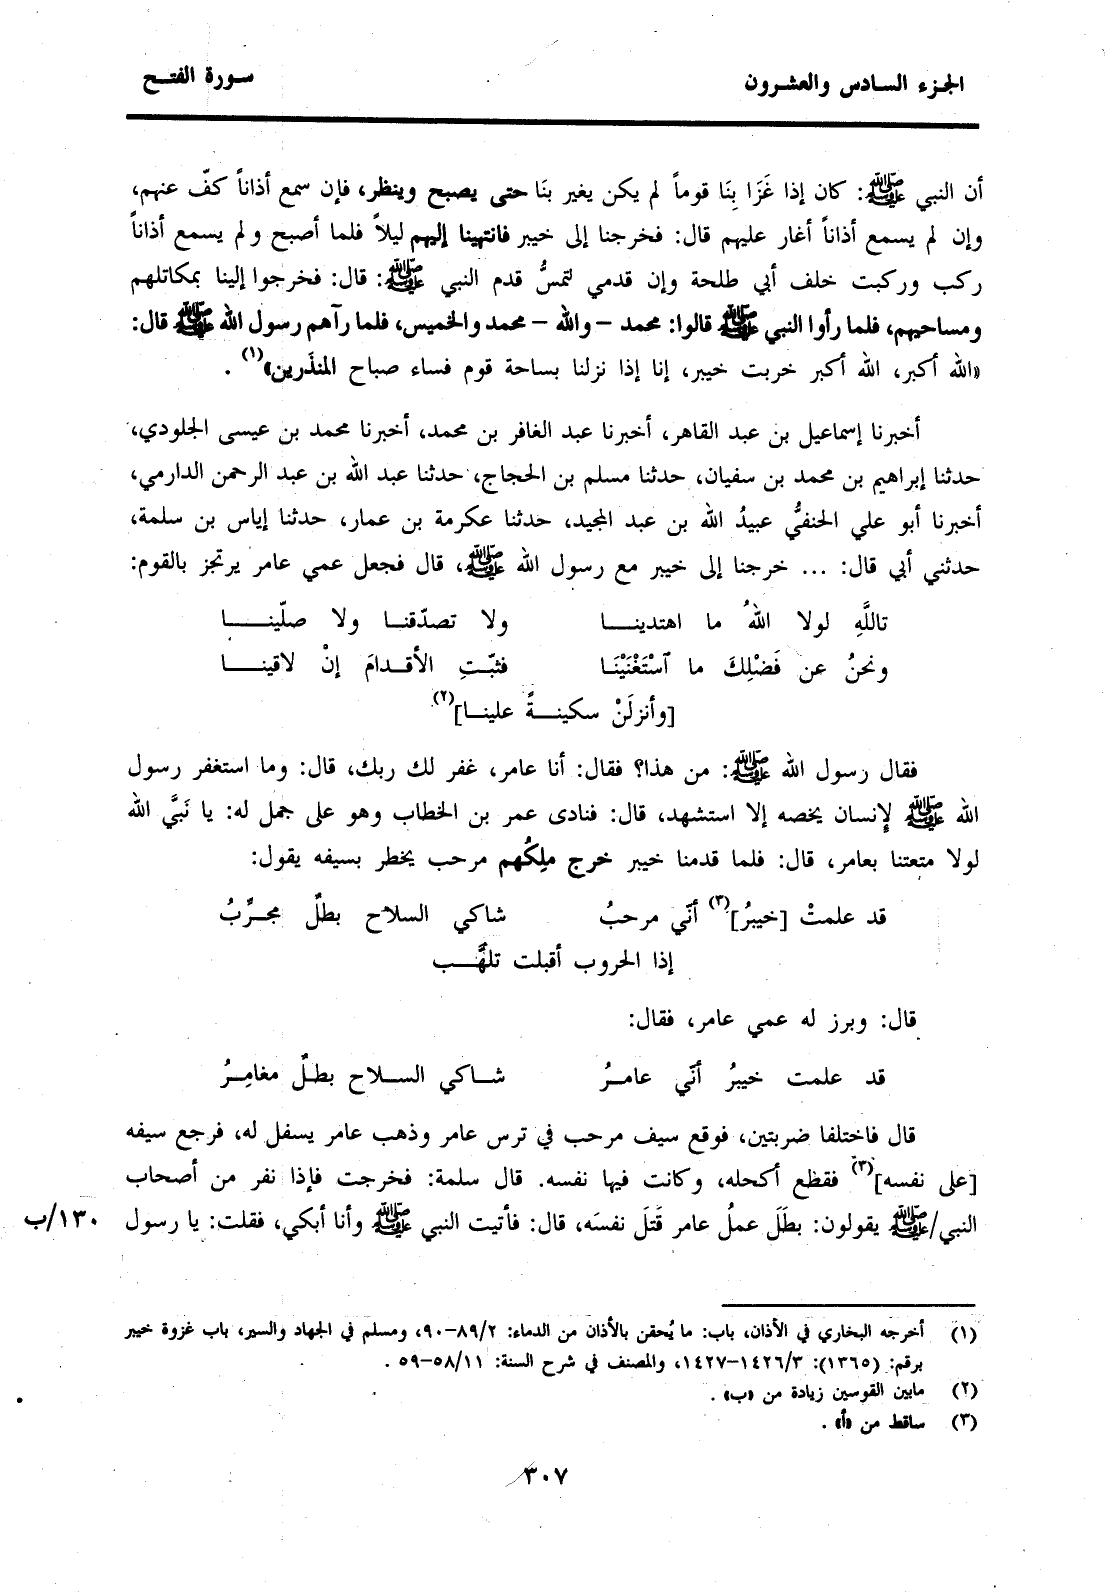 الجزء السادس والعشرون
سورة الفتح
أن النبي ﷺ: كان إذا غَزَا بِنَا قوماً لم يكن يغير بنَا حتى يصبح وينظر، فإن سمع أذاناً كفّ عنهم،
وإن لم يسمع أذاناً أغار عليهم قال: فخرجنا إلى خيبر فانتهينا إليهم ليلاً فلما أصبح ولم يسمع أذاناً
ركب وركبت خلف أبي طلحة وإن قدمي لتمسُّ قدم النبي ﷺ: قال: فخرجوا إلينا بمكاتلهم
ومساحيهم، فلما رأوا النبي ﷺ قالوا: محمد – والله – محمد والخميس، فلما رآهم رسول الله ﷺ قال:
«الله أكبر، الله أكبر خربت خيبر، إنا إذا نزلنا بساحة قوم فساء صباح المنذَرين»(١) .
أخبرنا إسماعيل بن عبد القاهر، أخبرنا عبد الغافر بن محمد، أخبرنا محمد بن عيسى الجلودي،
حدثنا إبراهيم بن محمد بن سفيان، حدثنا مسلم بن الحجاج، حدثنا عبد الله بن عبد الرحمن الدارمي،
أخبرنا أبو علي الحنفيُّ عبيدُ الله بن عبد المجيد، حدثنا عكرمة بن عمار، حدثنا إياس بن سلمة،
حدثني أبي قال: ... خرجنا إلى خيبر مع رسول الله ﷺ، قال فجعل عمي عامر يرتجز بالقوم:
تاللَّهِ لولا اللهُ ما اهتدينـــا ولا تصدّقنـا ولا صلّينـــا
ونحنُ عن فَضْلِكَ ما ٱسْتَغْنَيْنَا فثبّتِ الأقـدامَ إنْ لاقينـــا
[وأنزلَنْ سكينـــةً علينـا](٢)
فقال رسول الله ﷺ: من هذا؟ فقال: أنا عامر، غفر لك ربك، قال: وما استغفر رسول
الله ﷺ لإنسان يخصه إلا استشهد، قال: فنادى عمر بن الخطاب وهو على جمل له: يا نَبيَّ الله
لولا متعتنا بعامر، قال: فلما قدمنا خيبر خرج ملِكُهم مرحب يخطر بسيفه يقول:
قد علمتْ [خيبرُ](٣) أنّي مرحبُ شاكي السلاح بطلٌ مجرّبُ
إذا الحروب أقبلت تلهَّـــب
قال: وبرز له عمي عامر، فقال:
قد علمت خيبرُ أنّي عامـرُ شـاكي السـلاح بطلٌ مغامِـرُ
قال فاختلفا ضربتين، فوقع سيف مرحب في ترس عامر وذهب عامر يسفل له، فرجع سيفه
[على نفسه](٣) فقطع أكحله، وكانت فيها نفسه. قال سلمة: فخرجت فإذا نفر من أصحاب
النبي/ﷺ يقولون: بطَلَ عملُ عامر قَتلَ نفسَه، قال: فأتيت النبي ﷺ وأنا أبكي، فقلت: يا رسول
١٣٠/ب
(١) أخرجه البخاري في الأذان، باب: ما يُحقن بالأذان من الدماء: ٨٩/٢–٩٠، ومسلم في الجهاد والسير، باب غزوة خيبر
برقم: (١٣٦٥): ١٤٢٦/٣–١٤٢٧، والمصنف في شرح السنة: ٥٨/١١–٥٩ .
(٢) مابين القوسين زيادة من «ب» .
(٣) ساقط من «أ» .
٣٠٧